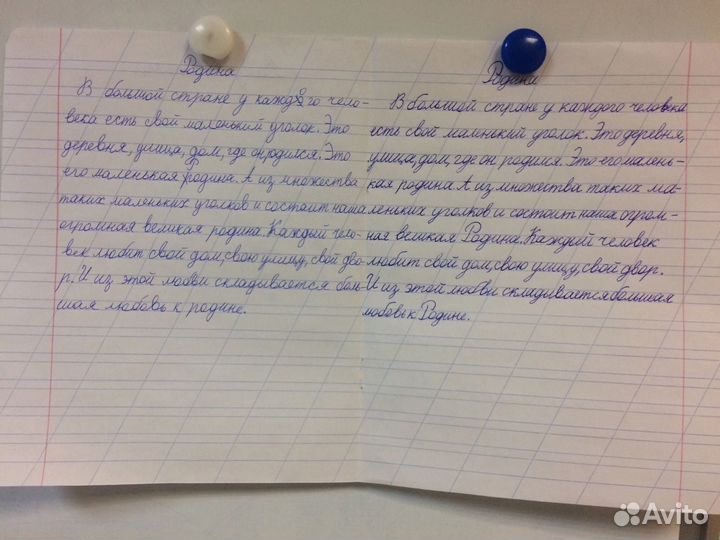 Родина
В большой стране у каждого чело-
века есть свой маленький уголок. Это
деревня, улица, дом, где он родился. Это
его маленькая родина. А из множества
таких маленьких уголков и состоит наша
огромная великая родина. Каждый чело-
век любит свой дом, свою улицу, свой дво-
р. И из этой любви складывается боль-
шая любовь к родине.
Родина
В большой стране у каждого человека
есть свой маленький уголок. Это деревня,
улица, дом, где он родился. Это его малень-
кая родина. А из множества таких ма-
леньких уголков и состоит наша огром-
ная великая Родина. Каждый человек
любит свой дом, свою улицу, свой двор.
И из этой любви складывается большая
любовь к Родине.
Avito